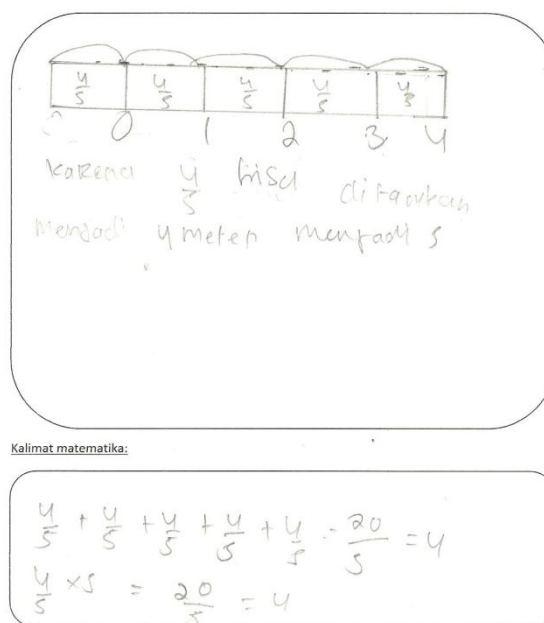 4/5 4/5 4/5 4/5 4/5
0 1 2 3 4
karena 4/5 bisa
menjadi 4 meter menjadi 5
Kalimat matematika:
4/5 + 4/5 + 4/5 + 4/5 + 4/5 = 20/5 = 4
4/5 x 5 = 20/5 = 4